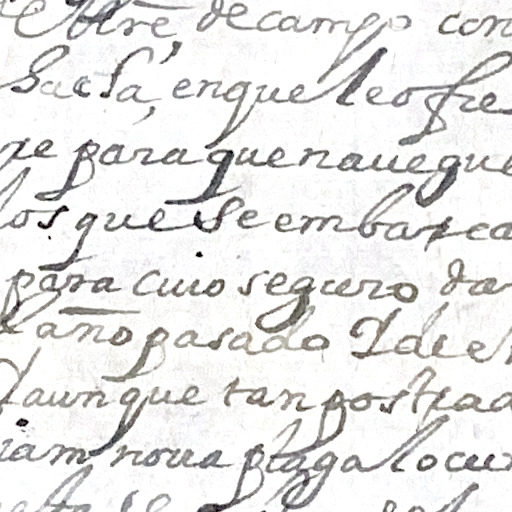 de campo con
Gacla, en que le ofre
re para que naueque
los que se embarca
para cuio seguro da
año pasado
aunque tan postrad
noua plaga locu